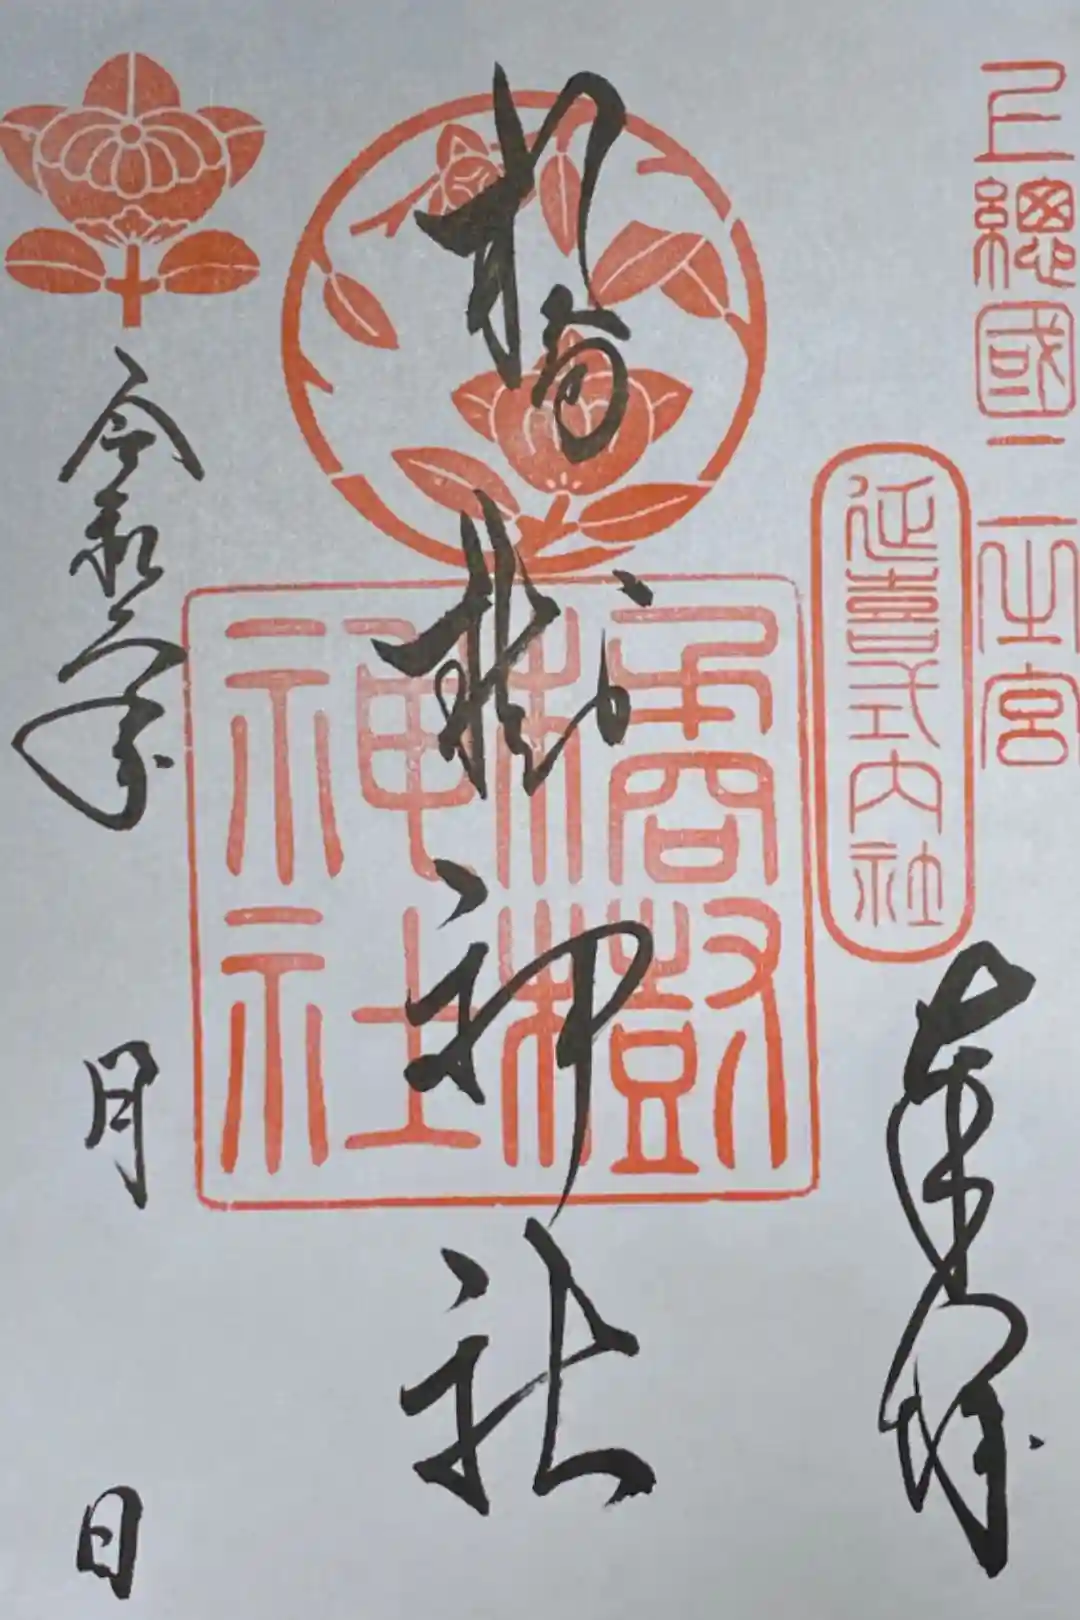 上總國二之宮
延喜式内社
奉拝
橘樹神社
橘樹神社
令和
年
月
日